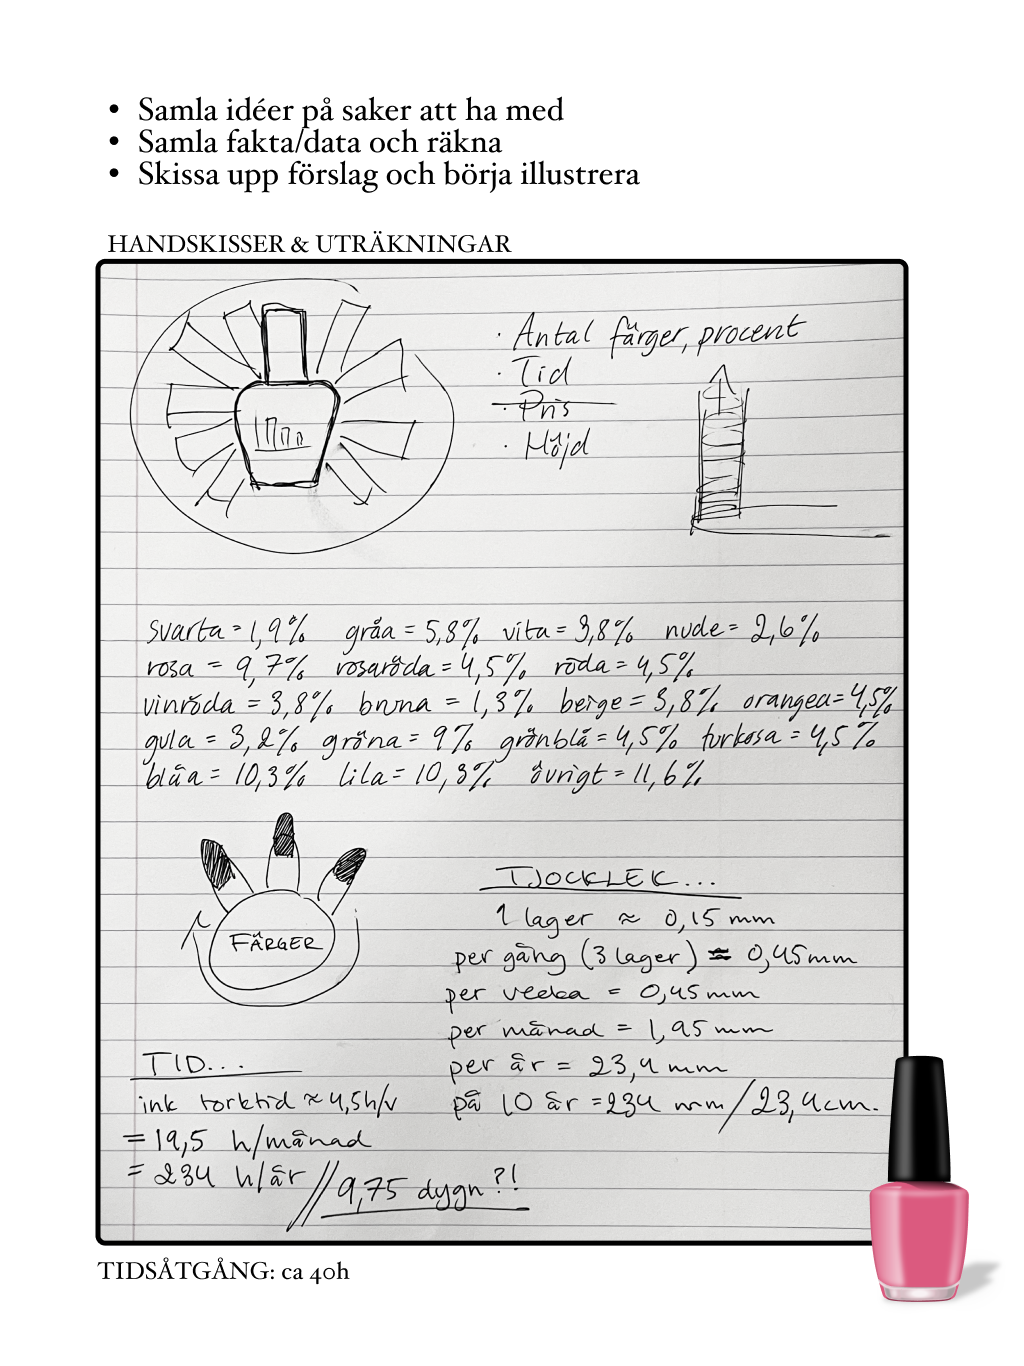 • Samla idéer på saker att ha med
• Samla fakta/data och räkna
• Skissa upp förslag och börja illustrera
HANDSKISSER & UTRÄKNINGAR
· Antal färger, procent
· Tid
· Pris
· Höjd
svarta = 1,9% gråa = 5,8% vita = 3,8% nude = 2,6%
rosa = 9,7% rosaröda = 4,5% röda = 4,5%
vinröda = 3,8% bruna = 1,3% beige = 3,8% orangea = 4,5%
gula = 3,2% gröna = 9% grönblå = 4,5% turkosa = 4,5%
blåa = 10,3% lila = 10,3% övrigt = 11,6%
FÄRGER
TJOCKLEK...
1 lager ≈ 0,15 mm
per gång (3 lager) ≈ 0,45 mm
per vecka = 0,45 mm
per månad = 1,95 mm
per år = 23,4 mm
på 10 år = 234 mm / 23,4 cm.
TID...
ink torktid ≈ 4,5h/v
= 19,5 h/månad
= 234 h/år // 9,75 dygn ?!
TIDSÅTGÅNG: ca 40h